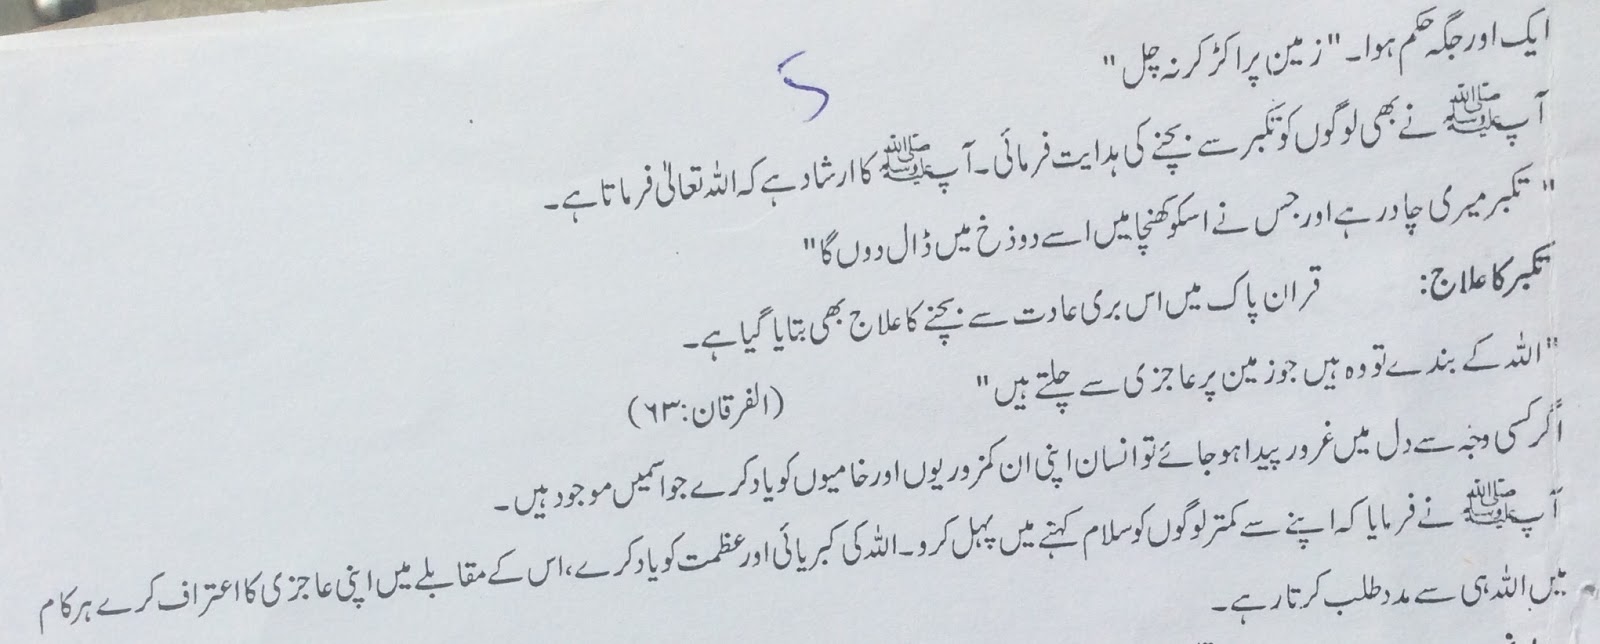 ایک اور جگہ حکم ہوا۔ "زمین پر اکڑ کر نہ چل"
آپ ﷺ نے بھی لوگوں کو تکبر سے بچنے کی ہدایت فرمائی۔ آپ ﷺ کا ارشاد ہے کہ اللہ تعالیٰ فرماتا ہے۔
"تکبر میری چادر ہے اور جس نے اسکو کھنچا میں اسے دوذخ میں ڈال دوں گا"
تکبر کا علاج: قران پاک میں اس بری عادت سے بچنے کا علاج بھی بتایا گیا ہے۔
"اللہ کے بندے تو وہ ہیں جو زمین پر عاجزی سے چلتے ہیں" (الفرقان: ۶۳)
اگر کسی وجہ سے دل میں غرور پیدا ہو جائے تو انسان اپنی ان کمزوریوں اور خامیوں کو یاد کرے جو اسمیں موجود ہیں۔
آپ ﷺ نے فرمایا کہ اپنے سے کمتر لوگوں کو سلام کہنے میں پہل کرو۔ اللہ کی کبریائی اور عظمت کو یاد کرے، اس کے مقابلے میں اپنی عاجزی کا اعتراف کرے ہر کام
میں اللہ ہی سے مدد طلب کرتا رہے۔